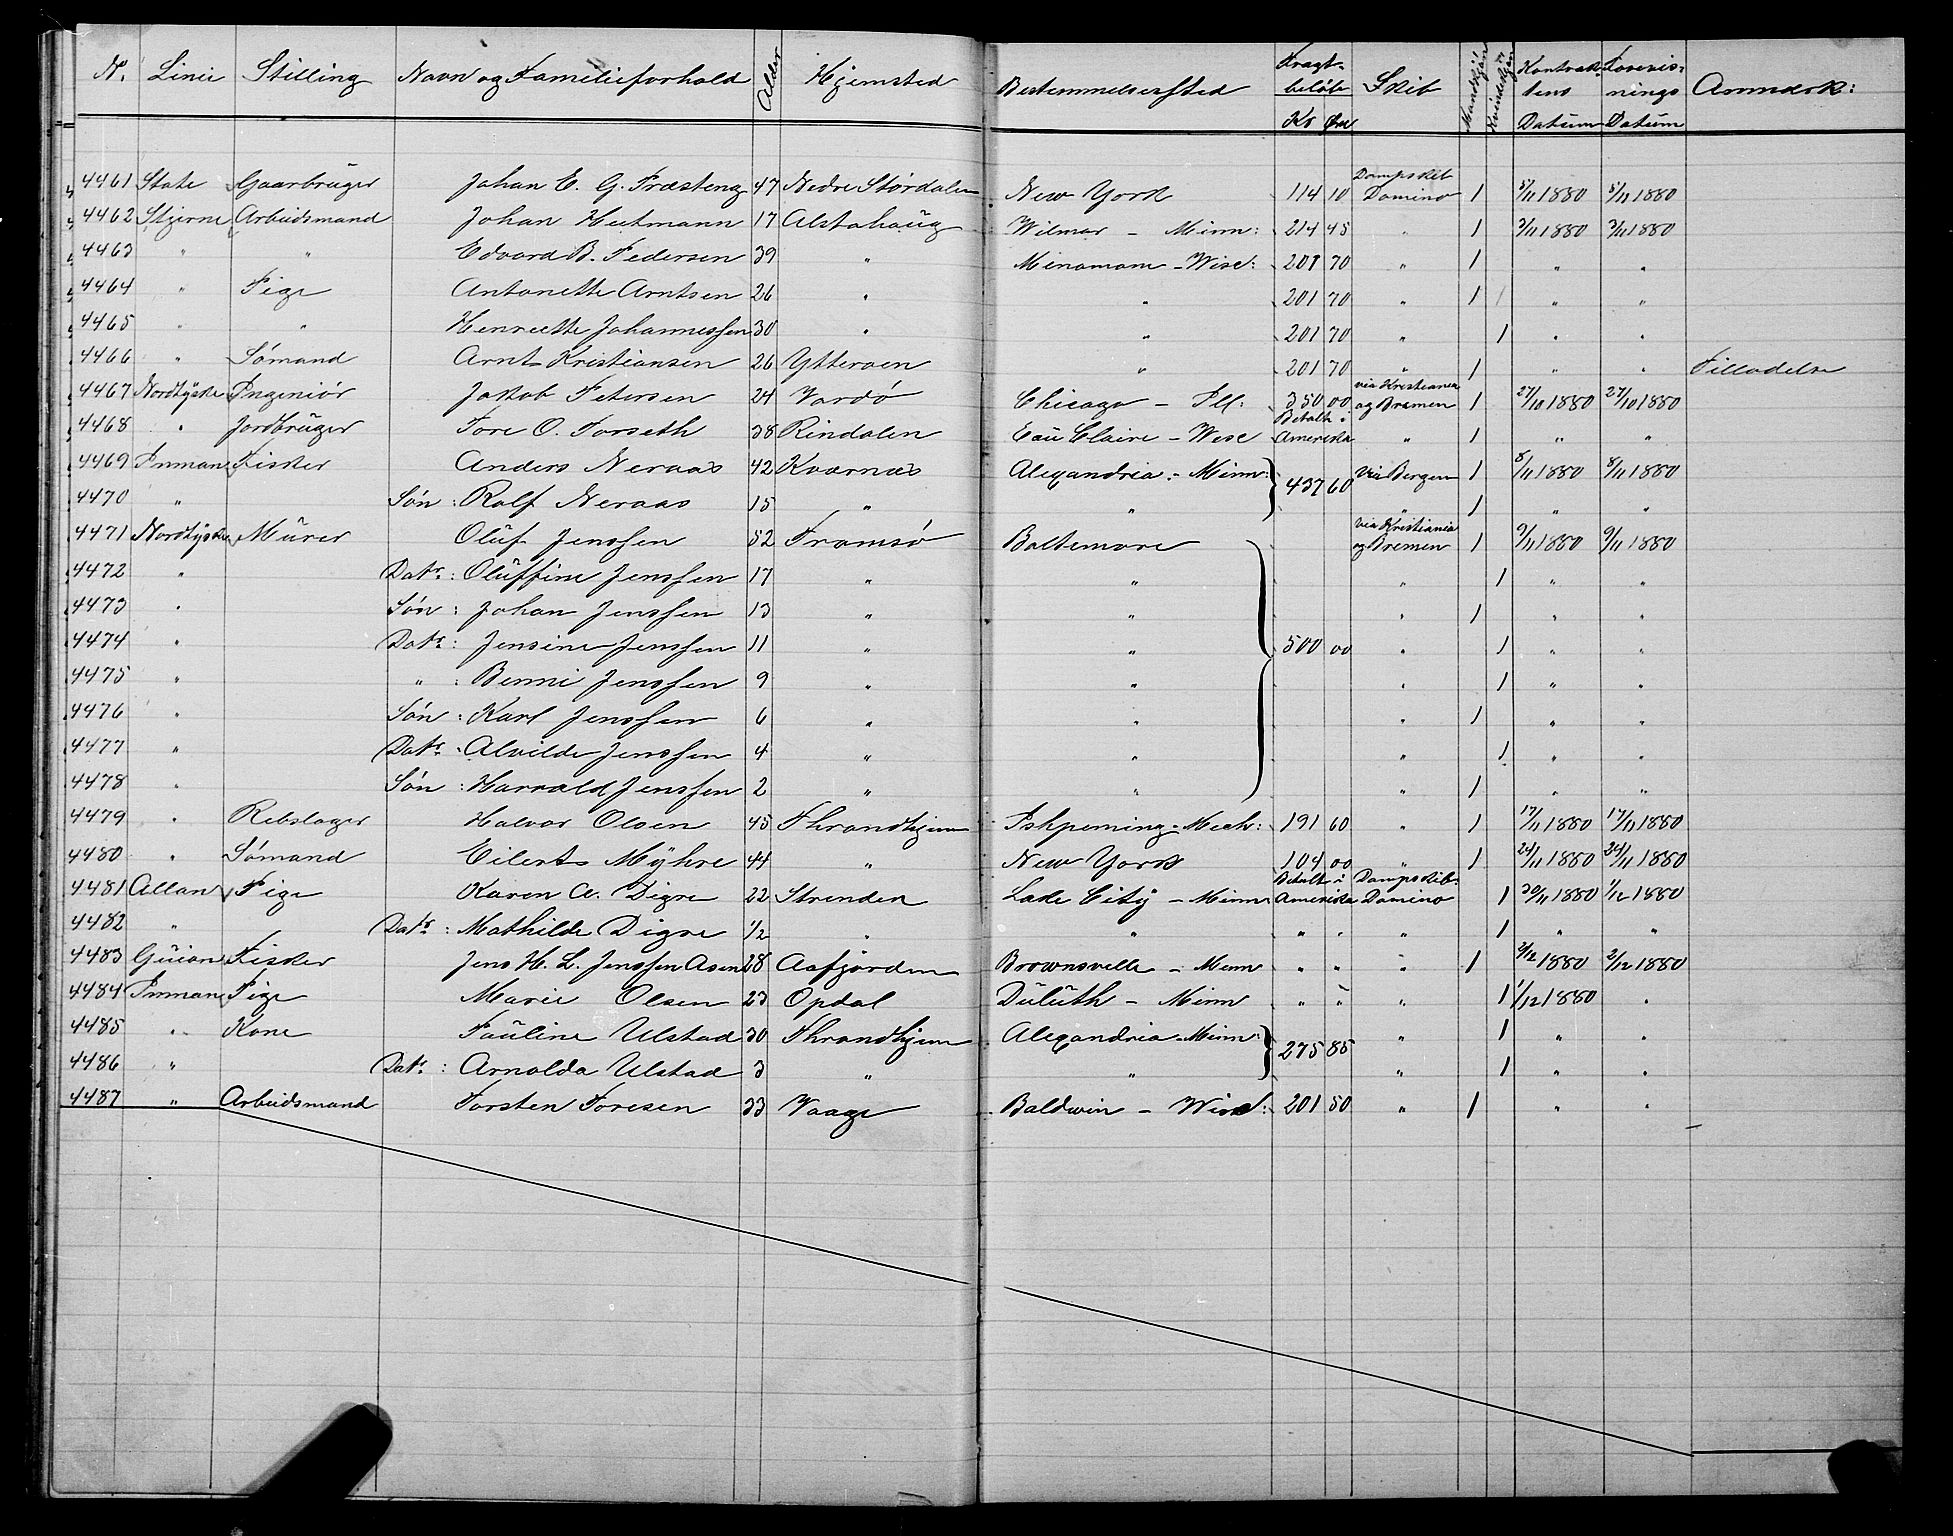 No. Linie Stilling Navn og Familieforhold Alder Hjemsted Bestemmelsessted Fragt-beløb Kr Øre Skib Mandkjøn Kvindekjøn Kontraktens Datum Forevisnings Datum Anmærk:
4461 State Gaarbrüger Johan E. G. Præsteng 47 Nedre Størdalen New York 114 10 Dampskib Domino 1 5/11 1880 5/11 1880
4462 Stjerne Arbeidsmand Johan Heitmann 17 Alstahaüg Wilmar - Minn: 214 45 " 1 3/11 1880 3/11 1880
4463 " " Edvard B. Pedersen 39 " Minamom - Wisc: 201 70 " 1 " "
4464 " Pige Antonette Arntsen 26 " " 201 70 " 1 " "
4465 " " Henriette Johannessen 30 " " 201 70 " 1 " "
4466 " Sømand Arnt Kristiansen 26 Ytterøen " 201 70 " 1 " " Filladelse
4467 Nordtÿske Ingeniør Jakob Petersen 24 Vardø Chicago - Ill: 350 00 via Kristiania og Bremen 1 27/10 1880 27/10 1880
4468 " Jordbrüger Tore O. Forseth 38 Rindalen Eaü Claire - Wisc Betalt i Amerika " 1 " "
4469 Inman Fisker Anders Neraas 42 Kvarnæs Alexandria - Minn: 437 60 via Bergen 1 8/11 1880 8/11 1880
4470 " Søn: Rolf Neraas 15 " " " 1 " "
4471 Nordtÿske Mürer Olüf Jenssen 52 Tromsø Baltemore via Kristiania og Bremen 1 9/11 1880 9/11 1880
4472 " Datr: Olüffine Jenssen 17 " " " 1 " "
4473 " Søn: Johan Jenssen 13 " " " 1 " "
4474 " Datr: Jensine Jenssen 11 " " 500 00 " 1 " "
4475 " " : Benni Jenssen 9 " " " 1 " "
4476 " Søn: Karl Jenssen 6 " " " 1 " "
4477 " Datr: Alvilde Jenssen 4 " " " 1 " "
4478 " Søn: Harrald Jenssen 2 " " " 1 " "
4479 " Rebslager Halvor Olsen 45 Throndhjem Ishpeming - Mech: 191 60 " 1 17/11 1880 17/11 1880
4480 " Sømand Eilert Mÿhre 44 " New York 104 00 " 1 24/11 1880 24/11 1880
4481 Allan Pige Karen A. Digre 22 Strinden Lake Citÿ - Minn Betalt i Amerika Dampskib: Domino 1 30/11 1880 1/12 1880
4482 " Datr: Mathilde Digre 1/2 " " " " " 1 " "
4483 Güion Fisker Jens H. L. Jenssen Asen 28 Aafjorden Brownsville - Minn " " " 1 2/12 1880 2/12 1880
4484 Inman Pige Marie Olsen 23 Opdal Dülüth - Minn " " " 1 1/12 1880 "
4485 " Kone Paüline Ulstad 30 Throndhjem Alexandria - Minn: 275 85 " 1 " "
4486 " Datr: Arnolda Ulstad 3 " " " 1 " "
4487 " Arbeidsmand Torsten Toresen 33 Vaage Baldwin - Wisc: 201 50 " 1 " "